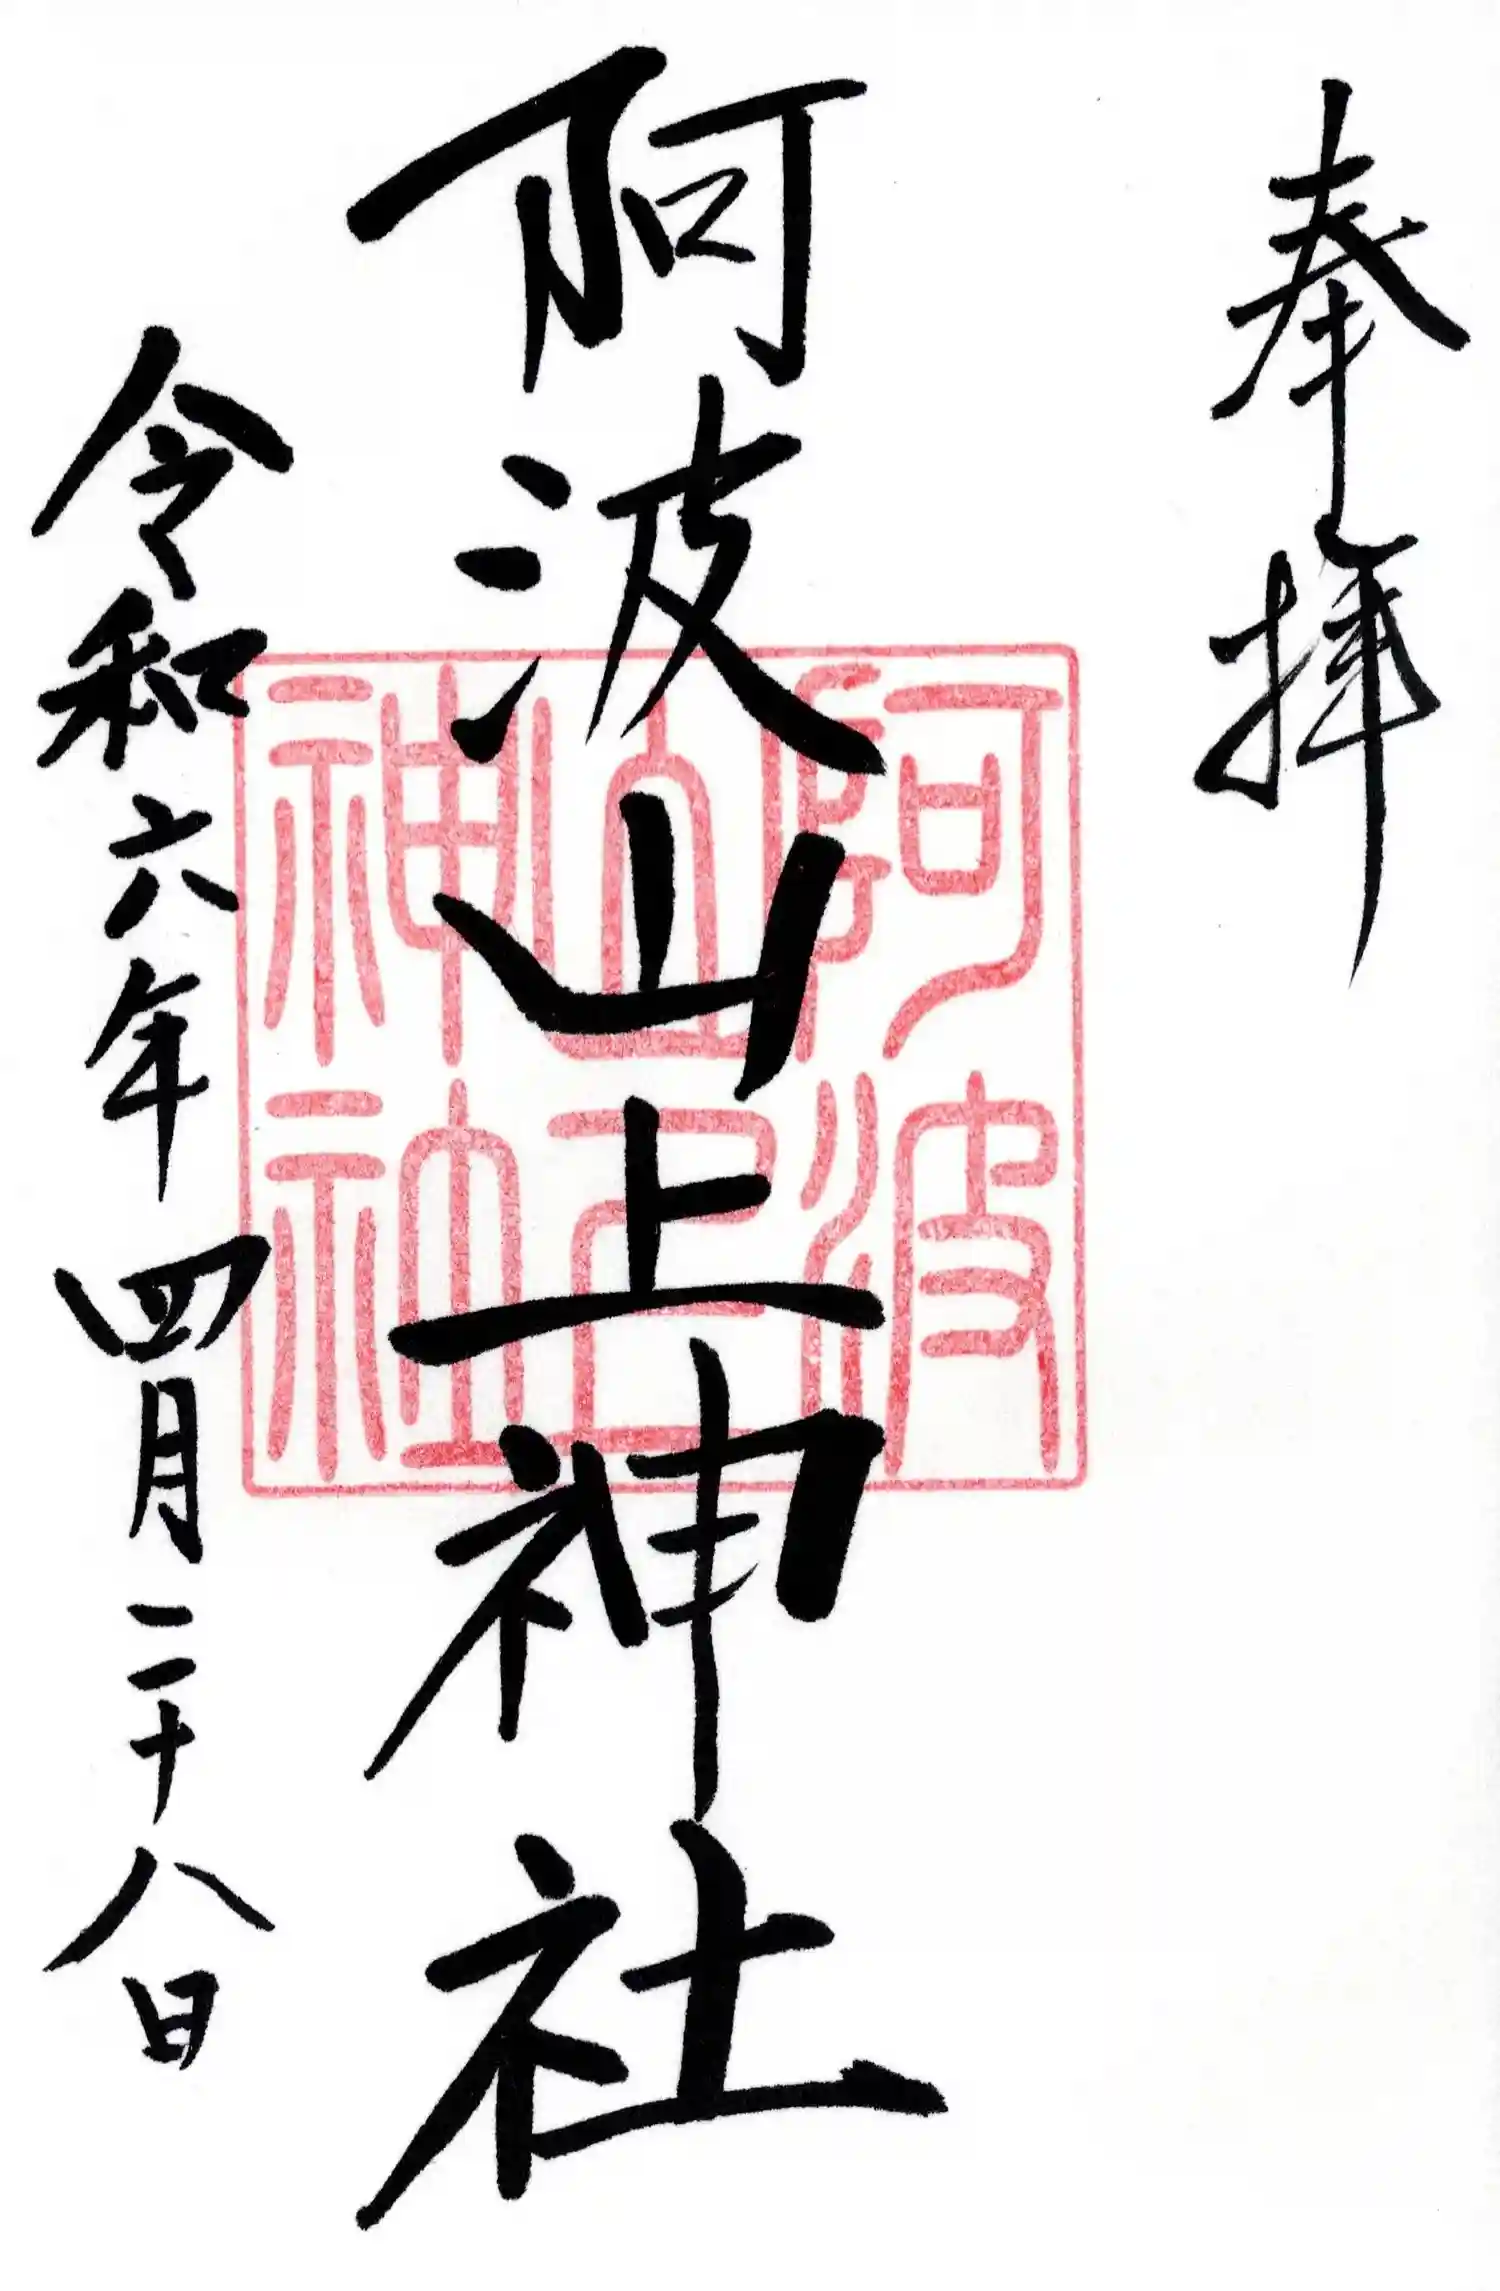 奉拝
阿波山上神社
令和六年四月二十八日
阿波
山上
神社